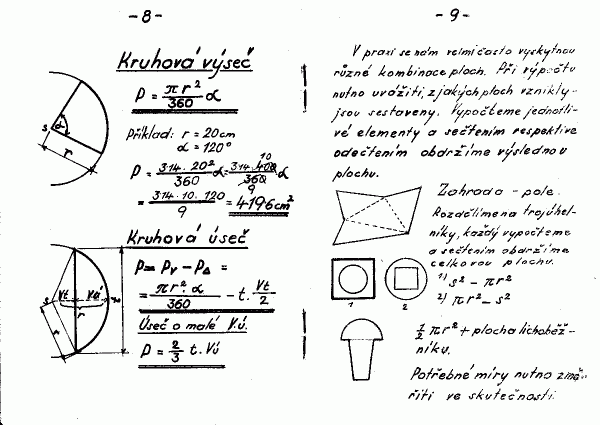 - 8 -
Kruhová výseč
P = πr²/360 α
Příklad: r = 20cm
α = 120°
P = 314·20²/360 α = 314·400/360 α 10 9
= 314·10·120/9 = 4196cm²
s α r
Kruhová úseč
P = Pv - P∆ =
= πr²·α/360 - t·Vt/2
Úseč o malé Vú.
P = 2/3 t. Vú
s Vt Vú r r
- 9 -
V praxi se nám velmi často vyskytnou
různé kombinace ploch. Při výpočtu
nutno uvážiti, z jakých ploch vznikly -
jsou sestaveny. Vypočteme jednotli-
vé elementy a sečtením respektive
odečtením obdržíme výslednou
plochu.
Zahrada - pole.
Rozdělíme na trojúhel-
níky, každý vypočteme
a sečtením obdržíme
celkovou plochu.
1) s² - πr²
2) πr² - s²
1 2
½πr² + plocha lichoběž-
níku.
Potřebné míry nutno změ-
řiti ve skutečnosti.